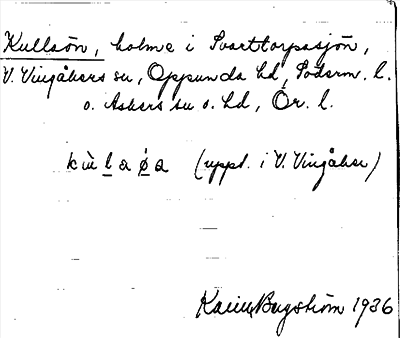 Kullaön, holme i Svarttorpasjön,
V. Vingåkers sn, Oppunda hd, Söderm. l.
o. Askers sn o. hd, Ör. l.
kùlaǿa (uppt. i V. Vingåker)
Karin Bergström 1936